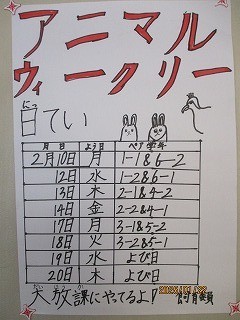 アニマル
ウィークリー
にっ
日てい
月日 よう日 ペア学年
2月10日 月 1-1&6-2
12日 水 1-2&6-1
13日 木 2-1&4-2
14日 金 2-2&4-1
17日 月 3-1&5-2
18日 火 3-2&5-1
19日 水 よび日
20日 木 よび日
だい ほう か
大放課にやってるよ!
飼育委員